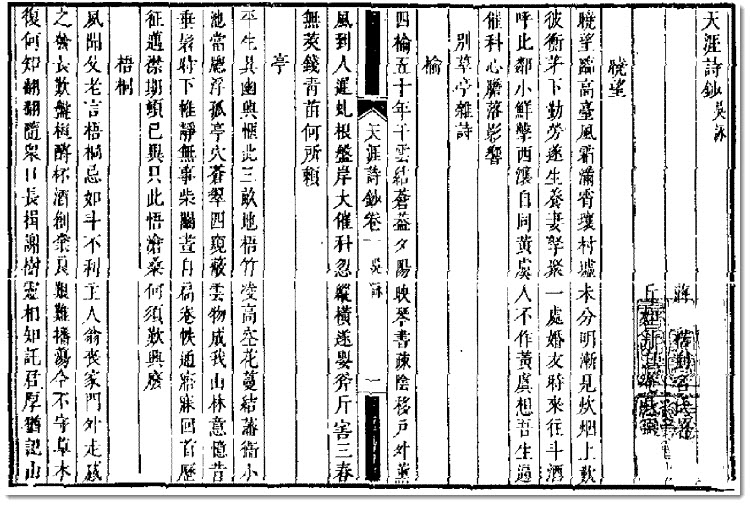 天涯詩鈔 吳詠
蔣
丘
曉望
曉望臨高臺風霜滿霄壤村墟未分明漸見炊烟上歎
彼衡茅下勤勞遂生養妻孥聚一處婚友時來往斗酒
呼比鄰小鮮擊西瀼自同黃虞人不作黃虞想吾生過
催科心膽落影響
別草亭雜詩
榆
四榆五十年干雲結蒼蓋夕陽映琴書疎陰移戶外薰
天涯詩鈔卷一 吳詠 一
風到人遲虬根盤岸大催科忽縱橫遂嬰斧斤害三春
無莢錢青苗何所賴
亭
平生具幽興愜此三畝地梧竹凌高空花蔓結藩衛小
池當牕浮孤亭穴蒼翠四窺蔽雲物成我山林意憶昔
垂髫時下帷靜無事柴關晝自扃卷帙通寤寐回首歷
征邁襟期頓已異只此悟滄桑何須歎興廢
梧桐
夙聞父老言梧桐忌如斗不利主人翁喪家門外走感
之發長歎盤桓酹杯酒創業良艱難播蕩今不守草木
復何知翩翩隨衆口長揖謝樹靈相知託君厚猶記山